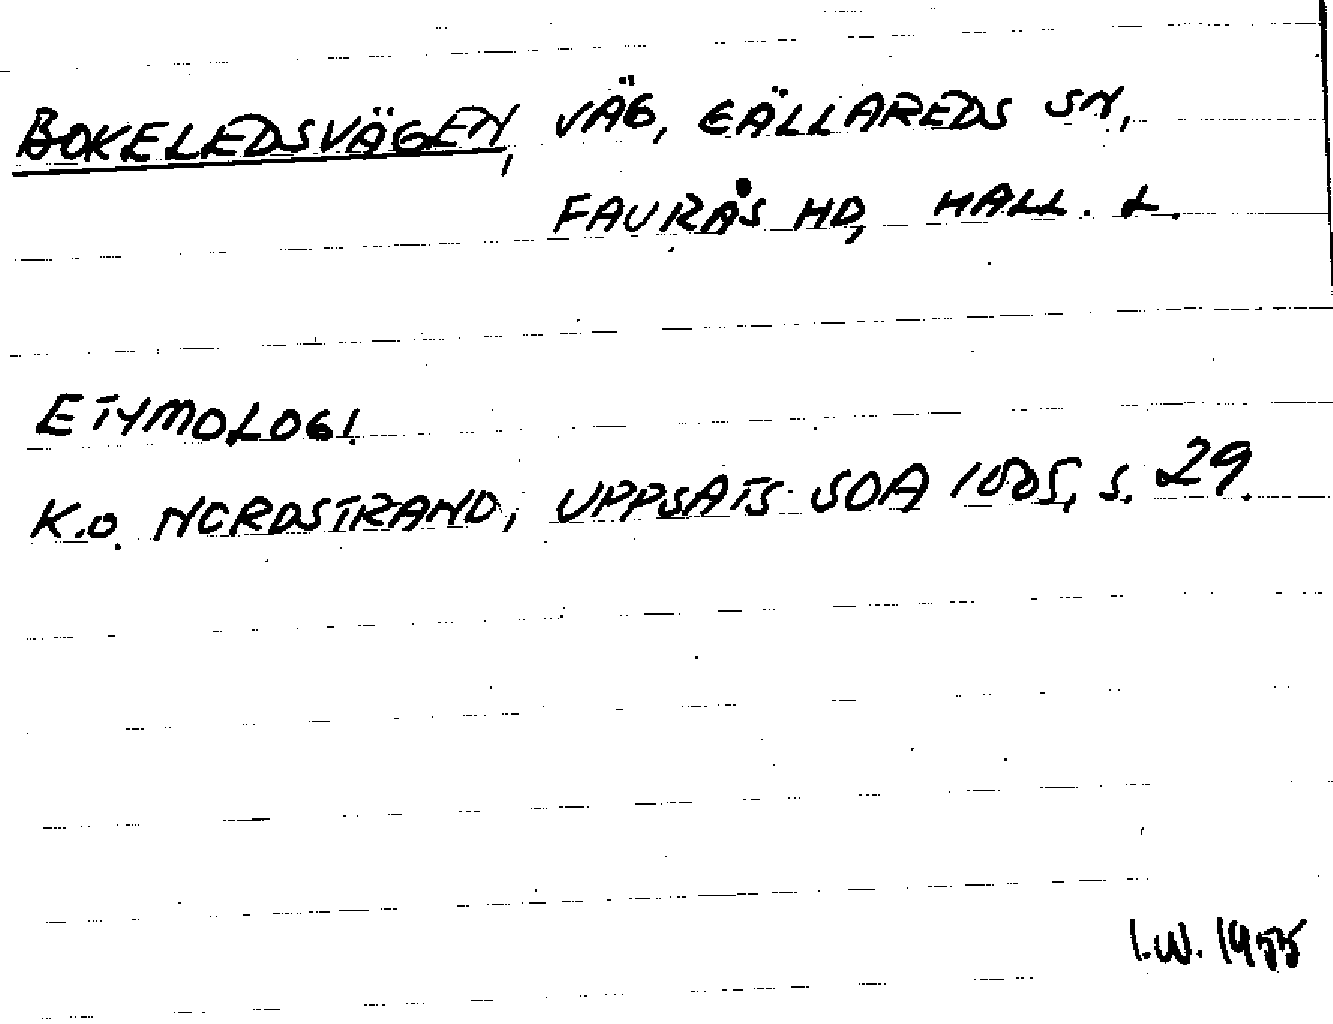 BOKELEDSVÄGEN, VÄG, GÄLLAREDS SN,
FAURÅS HD, HALL. L.
ETYMOLOGI
K.O. NORDSTRAND, UPPSATS SOA S. 29.
I.W. 1955